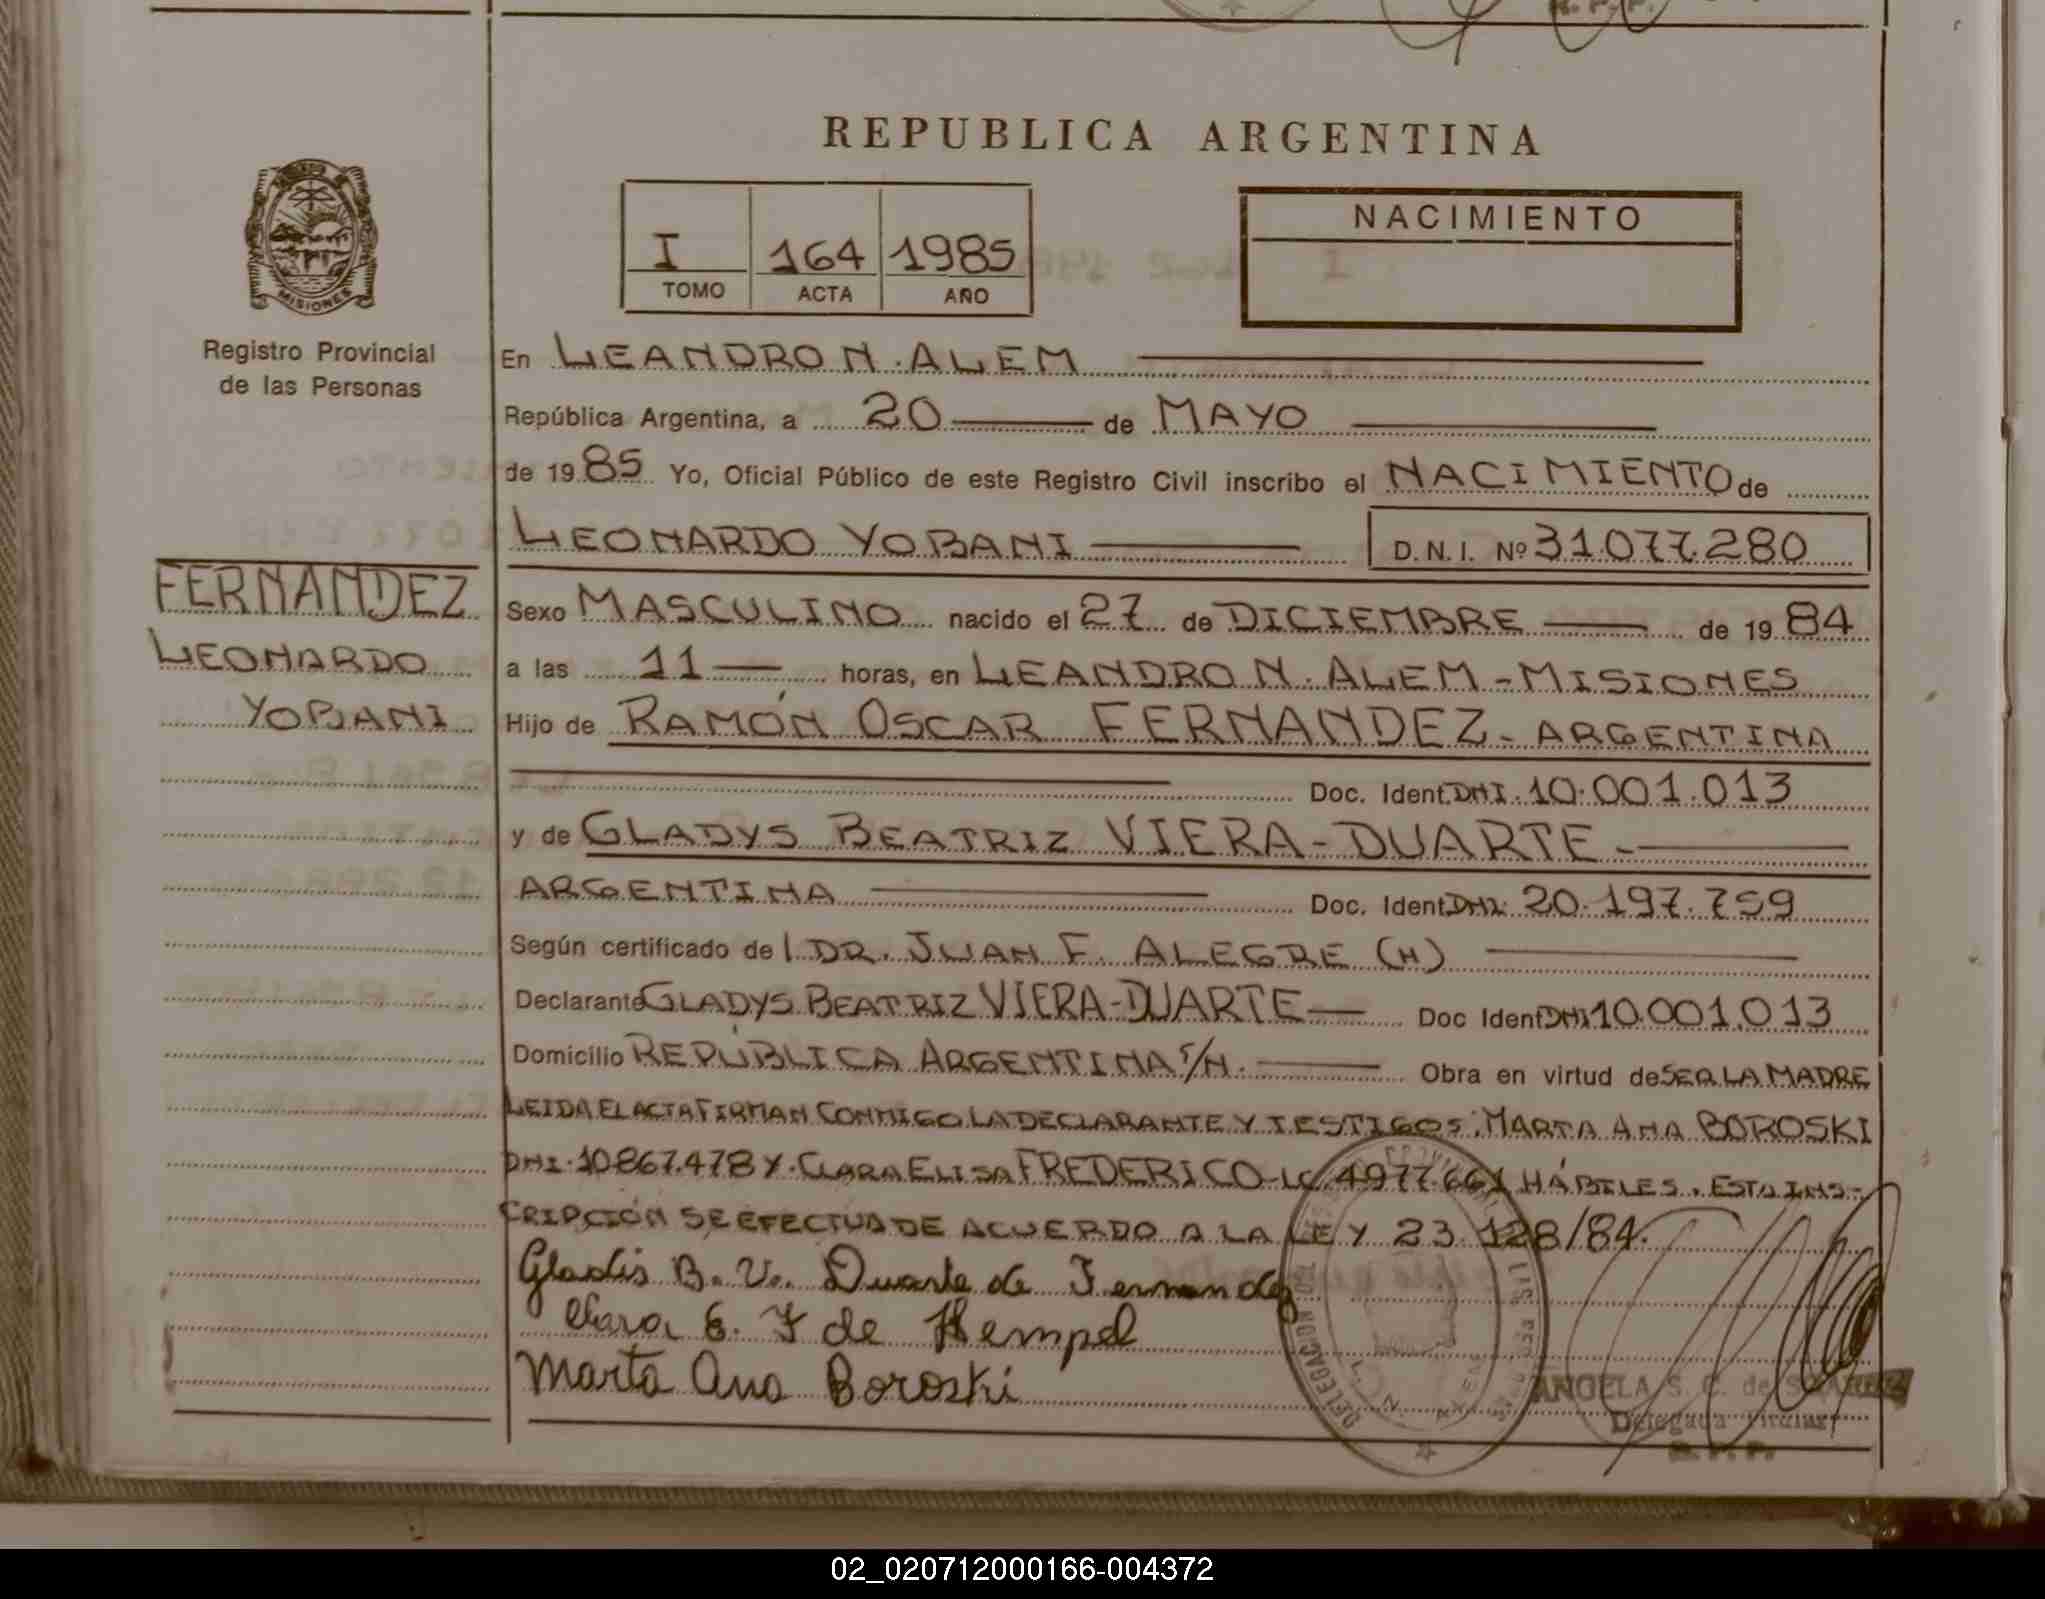 REPUBLICA ARGENTINA
MISIONES
I 164 1985
TOMO ACTA AÑO
NACIMIENTO
Registro Provincial
de las Personas
En LEANDRO N. ALEM
República Argentina, a 20 de MAYO
de 1985 Yo, Oficial Público de este Registro Civil inscribo el NACIMIENTO de
LEONARDO YOBANI D.N.I. Nº 31.077.280
FERNANDEZ
LEONARDO
YOBANI
Sexo MASCULINO nacido el 27 de DICIEMBRE de 1984
a las 11 horas, en LEANDRO N. ALEM - MISIONES
Hijo de RAMÓN OSCAR FERNANDEZ - ARGENTINA
Doc. Ident. DNI. 10.001.013
y de GLADYS BEATRIZ VIERA-DUARTE -
ARGENTINA Doc. Ident. DNI. 20.197.759
Según certificado del DR. JUAN F. ALEGRE (H)
Declarante GLADYS BEATRIZ VIERA-DUARTE Doc Ident DNI 10.001.013
Domicilio REPÚBLICA ARGENTINA S/N. Obra en virtud de SER LA MADRE
LEIDA EL ACTA FIRMAN CONMIGO LA DECLARANTE Y TESTIGOS: MARTA ANA BOROSKI
DNI. 10.867.478 Y. CLARA ELISA FREDERICO-LC. 4.977.661 HÁBILES. ESTA INS-
CRIPCIÓN SE EFECTUA DE ACUERDO A LA LEY 23.128/84.
Gladis B. V. Duarte de Fernandez
Clara E. F de Hempel
Marta Ana Boroski
DELEGACION DEL
ANGELA S. C. de SUAREZ
Delegada Titular
R. P. P.
02_020712000166-004372